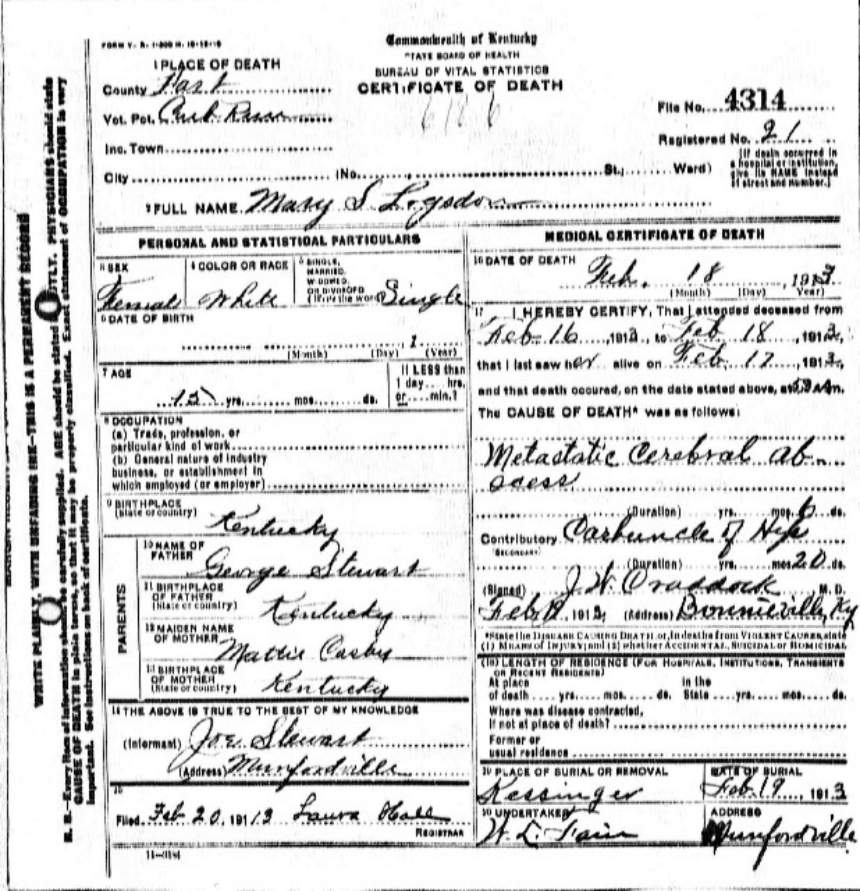 FORM V. S. 1-
Commonwealth of Kentucky
STATE BOARD OF HEALTH
BUREAU OF VITAL STATISTICS
CERTIFICATE OF DEATH
1 PLACE OF DEATH
County Hart
Vot. Pct.
Inc. Town
City (No. St.; Ward)
File No. 4314
Registered No. 21
[If death occurred in a hospital or institution, give its NAME instead of street and number.]
2 FULL NAME Mary S Logsdon
PERSONAL AND STATISTICAL PARTICULARS
3 SEX
Female
4 COLOR OR RACE
White
5 SINGLE, MARRIED, WIDOWED, OR DIVORCED (Write the word) Single
6 DATE OF BIRTH
, 1
(Month) (Day) (Year)
7 AGE
15 yrs. mos. ds.
If LESS than 1 day hrs. or min.?
8 OCCUPATION
(a) Trade, profession, or
particular kind of work
(b) General nature of industry
business, or establishment in
which employed (or employer)
9 BIRTHPLACE
(State or country) Kentucky
PARENTS
10 NAME OF
FATHER George Stewart
11 BIRTHPLACE
OF FATHER
(State or country) Kentucky
12 MAIDEN NAME
OF MOTHER Mattie Casby
13 BIRTHPLACE
OF MOTHER
(State or country) Kentucky
14 THE ABOVE IS TRUE TO THE BEST OF MY KNOWLEDGE
(Informant) Joe Stewart
(Address) Munfordville
15
Filed Feb 20, 1913 Laura Hall
REGISTRAR
MEDICAL CERTIFICATE OF DEATH
16 DATE OF DEATH
Feb. 18, 1913
(Month) (Day) (Year)
17 I HEREBY CERTIFY, That I attended deceased from
Feb 16, 1913, to Feb 18, 1913,
that I last saw her alive on Feb 17, 1913,
and that death occured, on the date stated above, at m.
The CAUSE OF DEATH* was as follows:
Metastatic Cerebral Ab-
scess
(Duration) yrs. mos. 6 ds.
Contributory Carbuncle of Hip
(SECONDARY)
(Duration) yrs. mos. 20 ds.
(Signed) J. W. Craddock M. D.
Feb 1913 (Address) Bonnieville, Ky
*State the DISEASE CAUSING DEATH or, in deaths from VIOLENT CAUSES, state
(1) MEANS OF INJURY; and (2) whether ACCIDENTAL, SUICIDAL or HOMICIDAL
(18) LENGTH OF RESIDENCE (FOR HOSPITALS, INSTITUTIONS, TRANSIENTS
OR RECENT RESIDENTS)
At place in the
of death yrs. mos. ds. State yrs. mos. ds.
Where was disease contracted,
If not at place of death?
Former or
usual residence
19 PLACE OF BURIAL OR REMOVAL
Kessinger
DATE OF BURIAL
Feb 19, 1913
20 UNDERTAKER
ADDRESS
Munfordville
WRITE PLAINLY, WITH UNFADING INK—THIS IS A PERMANENT RECORD
N. B.—Every item of information should be carefully supplied. AGE should be stated EXACTLY. PHYSICIANS should state
CAUSE OF DEATH in plain terms, so that it may be properly classified. Exact statement of OCCUPATION is very
important. See instructions on back of certificate.